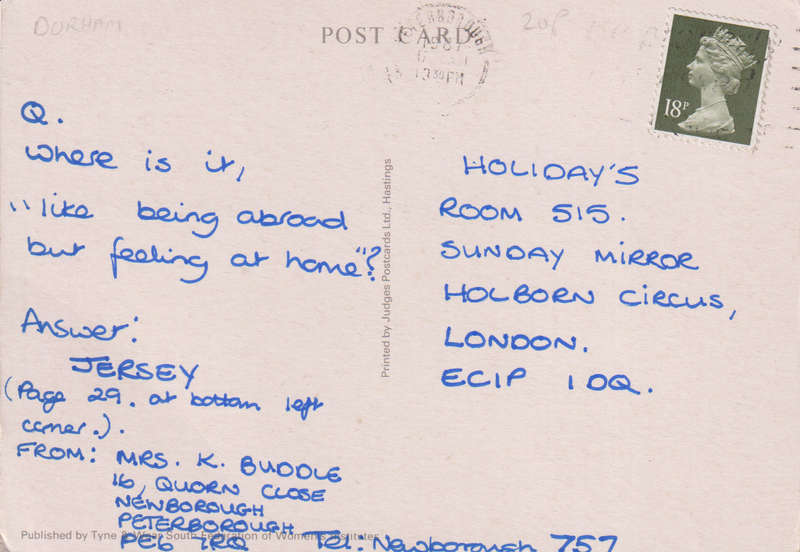 DURHAM
20P
POST CARD
1987
18P
Q.
Where is it,
"like being abroad
but feeling at home"?
Answer:
JERSEY
(Page 29. at bottom left
corner.).
FROM: MRS. K. BUDDLE
16, QUORN CLOSE
NEWBOROUGH
PETERBOROUGH
PE6 7RQ Tel: Newborough 757
Published by Tyne & Wear South Federation of Women's Institutes
Printed by Judges Postcards Ltd., Hastings
HOLIDAY'S
ROOM 515.
SUNDAY MIRROR
HOLBORN CIRCUS,
LONDON.
EC1P 1DQ.